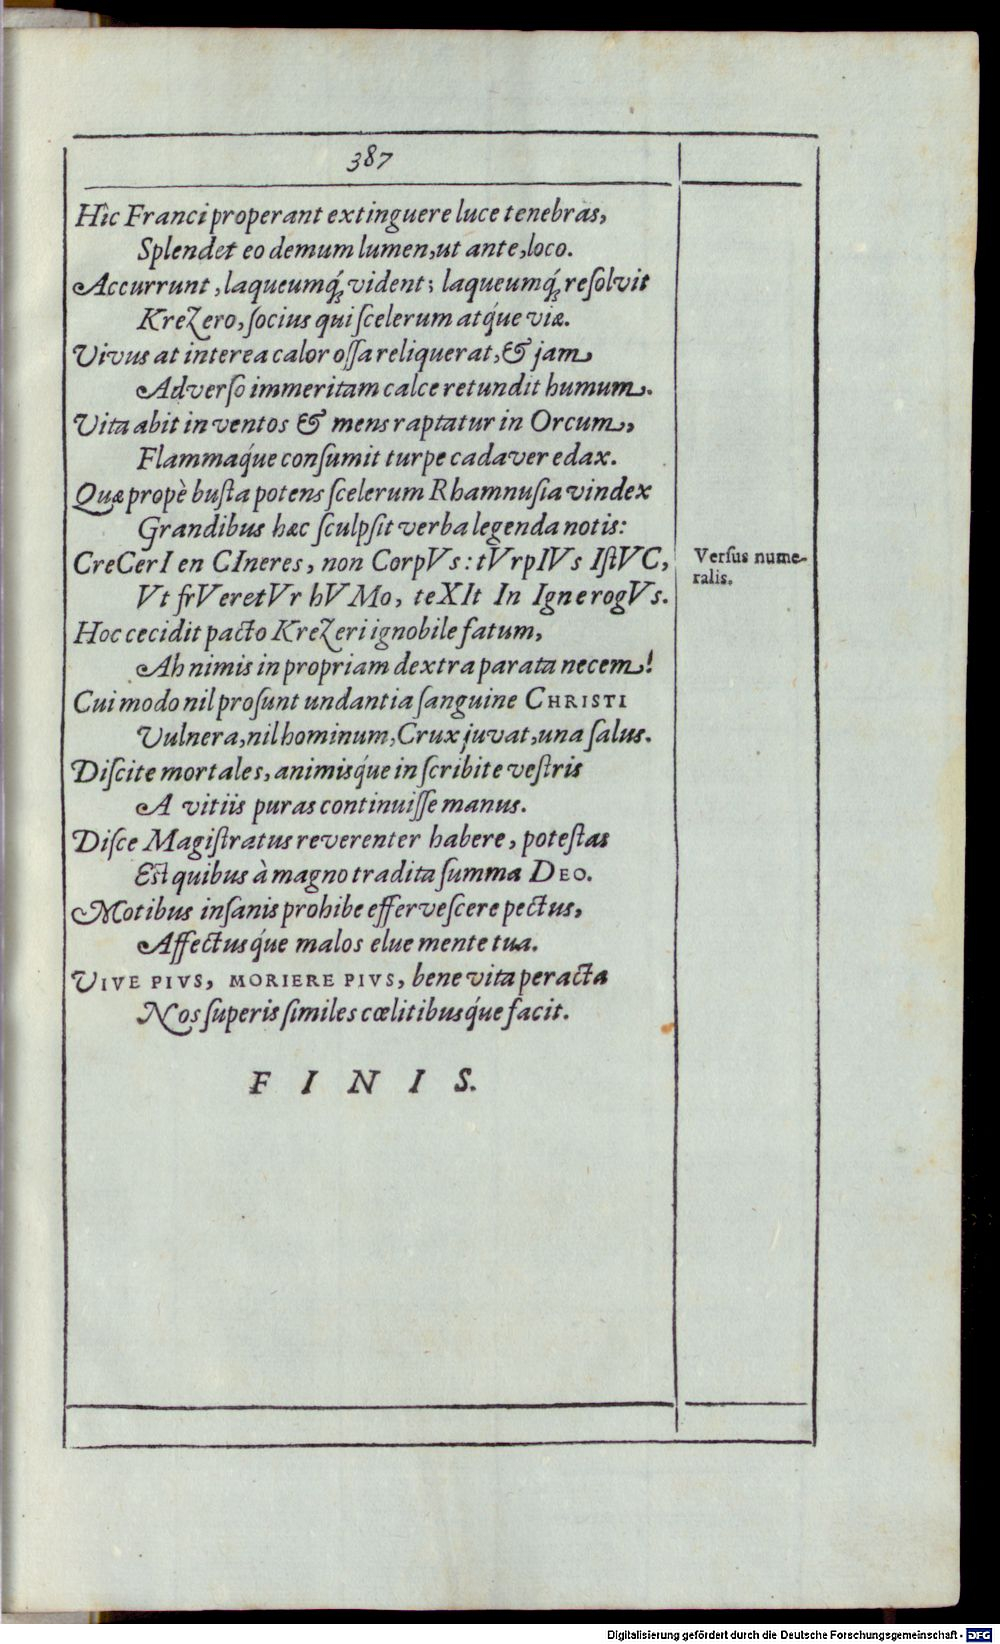 387
Hîc Franci properant extinguere luce tenebras,
Splendet eo demum lumen, ut ante, loco.
Accurrunt, laqueumq́ꝫ vident; laqueumq́ꝫ reſolvit
KreZero, ſocius qui ſcelerum atq́ue viæ.
Vivus at interea calor oſſa reliquerat, & jam
Adverſo immeritam calce retundit humum.
Vita abit in ventos & mens raptatur in Orcum,
Flammaq́ue conſumit turpe cadaver edax.
Quæ propè buſta potens ſcelerum Rhamnuſia vindex
Grandibus hæc ſculpſit verba legenda notis:
CreCerI en CIneres, non CorpVs: tVrpIVs IſtVC,
Vt frVeretVr hVMo, teXIt In Igne rogVs.
Versus nume-
ralis.
Hoc cecidit pacto KreZeri ignobile fatum,
Ah nimis in propriam dextra parata necem!
Cui modo nil proſunt undantia ſanguine CHRISTI
Vulnera, nil hominum, Crux juvat, una ſalus.
Diſcite mortales, animisq́ue inſcribite veſtris
A vitiis puras continuiſſe manus.
Diſce Magiſtratus reverenter habere, poteſtas
Eſt quibus à magno tradita ſumma DEO.
Motibus inſanis prohibe effervescere pectus,
Affectusq́ue malos elue mente tua.
VIVE PIVS, MORIERE PIVS, bene vita peracta
Nos ſuperis ſimiles cœlitibusq́ue facit.
F I N I S.
Digitalisierung gefördert durch die Deutsche Forschungsgemeinschaft - DFG